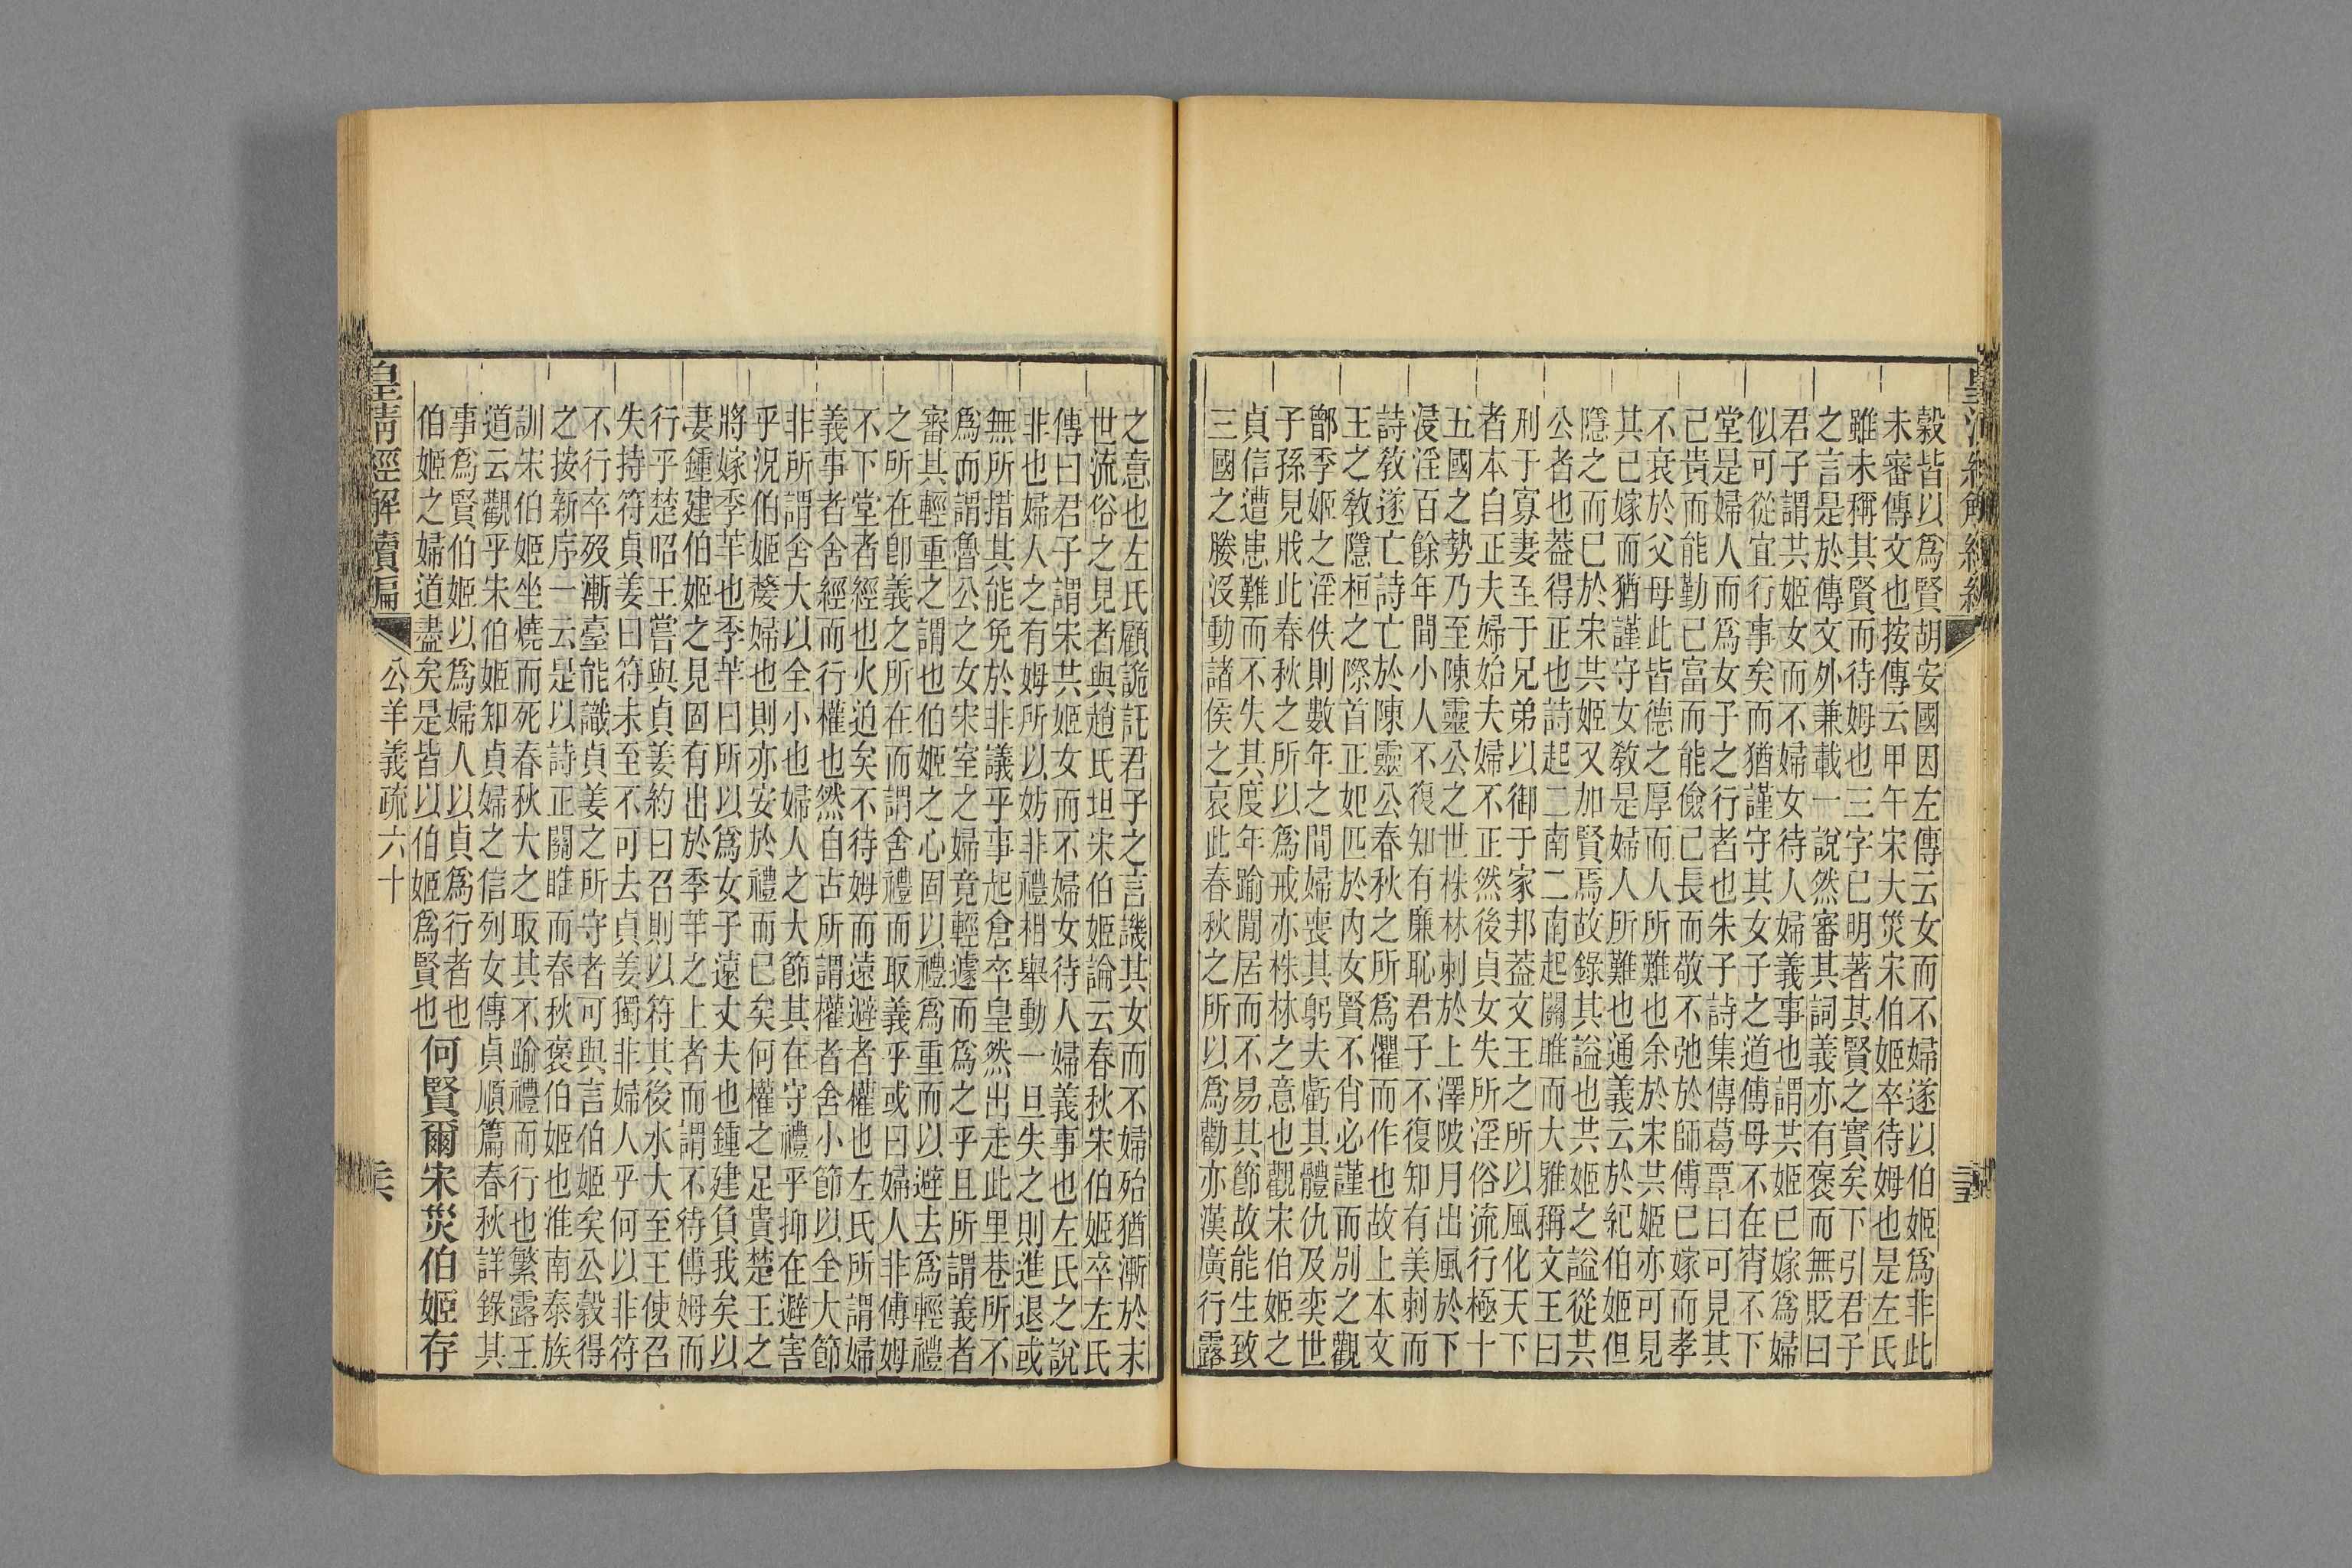 皇清經解續編
穀皆以爲賢胡安國因左傳云女而不婦遂以伯姬爲非此
未審傳文也按傳云甲午宋大災宋伯姬卒待姆也是左氏
雖未稱其賢而待姆也三字已明著其賢之實矣下引君子
之言是於傳文外兼載一說然審其詞義亦有褒而無貶曰
君子謂共姬女而不婦女待人婦義事也謂共姬已嫁爲婦
似可從宜行事矣而猶謹守其女子之道傳母不在宵不下
堂是婦人而爲女子之行者也朱子詩集傳葛覃曰可見其
已貴而能勤已富而能儉已長而敬不弛於師傅已嫁而孝
不衰於父母此皆德之厚而人所難也余於宋共姬亦可見
其已嫁而猶謹守女教是婦人所難也通義云於紀伯姬但
隱之而已於宋共姬又加賢焉故錄其謚也共姬之謚從共
公者也葢得正也詩起二南二南起關雎而大雅稱文王曰
刑于寡妻至于兄弟以御于家邦葢文王之所以風化天下
者本自正夫婦始夫婦不正然後貞女失所淫俗流行極十
五國之勢乃至陳靈公之世株林刺於上澤陂月出風於下
浸淫百餘年間小人不復知有廉恥君子不復知有美刺而
詩教遂亡詩亡於陳靈公春秋之所爲懼而作也故上本文
王之教隱桓之際首正妃匹於內女賢不肖必謹而別之觀
鄫季姬之淫佚則數年之間婦喪其躬夫虧其體仇及奕世
子孫見戕此春秋之所以爲戒亦株林之意也觀宋伯姬之
貞信遭患難而不失其度年踰閒居而不易其節故能生致
三國之媵沒動諸侯之哀此春秋之所以爲勸亦漢廣行露
之意也左氏顧詭託君子之言譏其女而不婦殆猶漸於末
世流俗之見者與趙氏坦宋伯姬論云春秋宋伯姬卒左氏
傳曰君子謂宋共姬女而不婦女待人婦義事也左氏之說
非也婦人之有姆所以妨非禮相舉動一旦失之則進退或
無所措其能免於非議乎事起倉卒皇然出走此里巷所不
爲而謂魯公之女宋室之婦竟輕遽而爲之乎且所謂義者
審其輕重之謂也伯姬之心固以禮爲重而以避去爲輕禮
之所在卽義之所在而謂舍禮而取義乎或曰婦人非傅姆
不下堂者經也火迫矣不待姆而遠避者權也左氏所謂婦
義事者舍經而行權也然自古所謂權者舍小節以全大節
非所謂舍大以全小也婦人之大節其在守禮乎抑在避害
乎況伯姬嫠婦也則亦安於禮而已矣何權之足貴楚王之
將嫁季羋也季羋曰所以爲女子遠丈夫也鍾建負我矣以
妻鍾建伯姬之見固有出於季羋之上者而謂不待傅姆而
行乎楚昭王嘗與貞姜約曰召則以符其後水大至王使召
失持符貞姜曰符未至不可去貞姜獨非婦人乎何以非符
不行卒歿漸臺能識貞姜之所守者可與言伯姬矣公穀得
之按新序一云是以詩正關雎而春秋褒伯姬也淮南泰族
訓宋伯姬坐燒而死春秋大之取其不踰禮而行也繁露王
道云觀乎宋伯姬知貞婦之信列女傳貞順篇春秋詳錄其
事爲賢伯姬以爲婦人以貞爲行者也
伯姬之婦道盡矣是皆以伯姬爲賢也何賢爾宋災伯姬存
皇清經解續編 公羊義疏六十